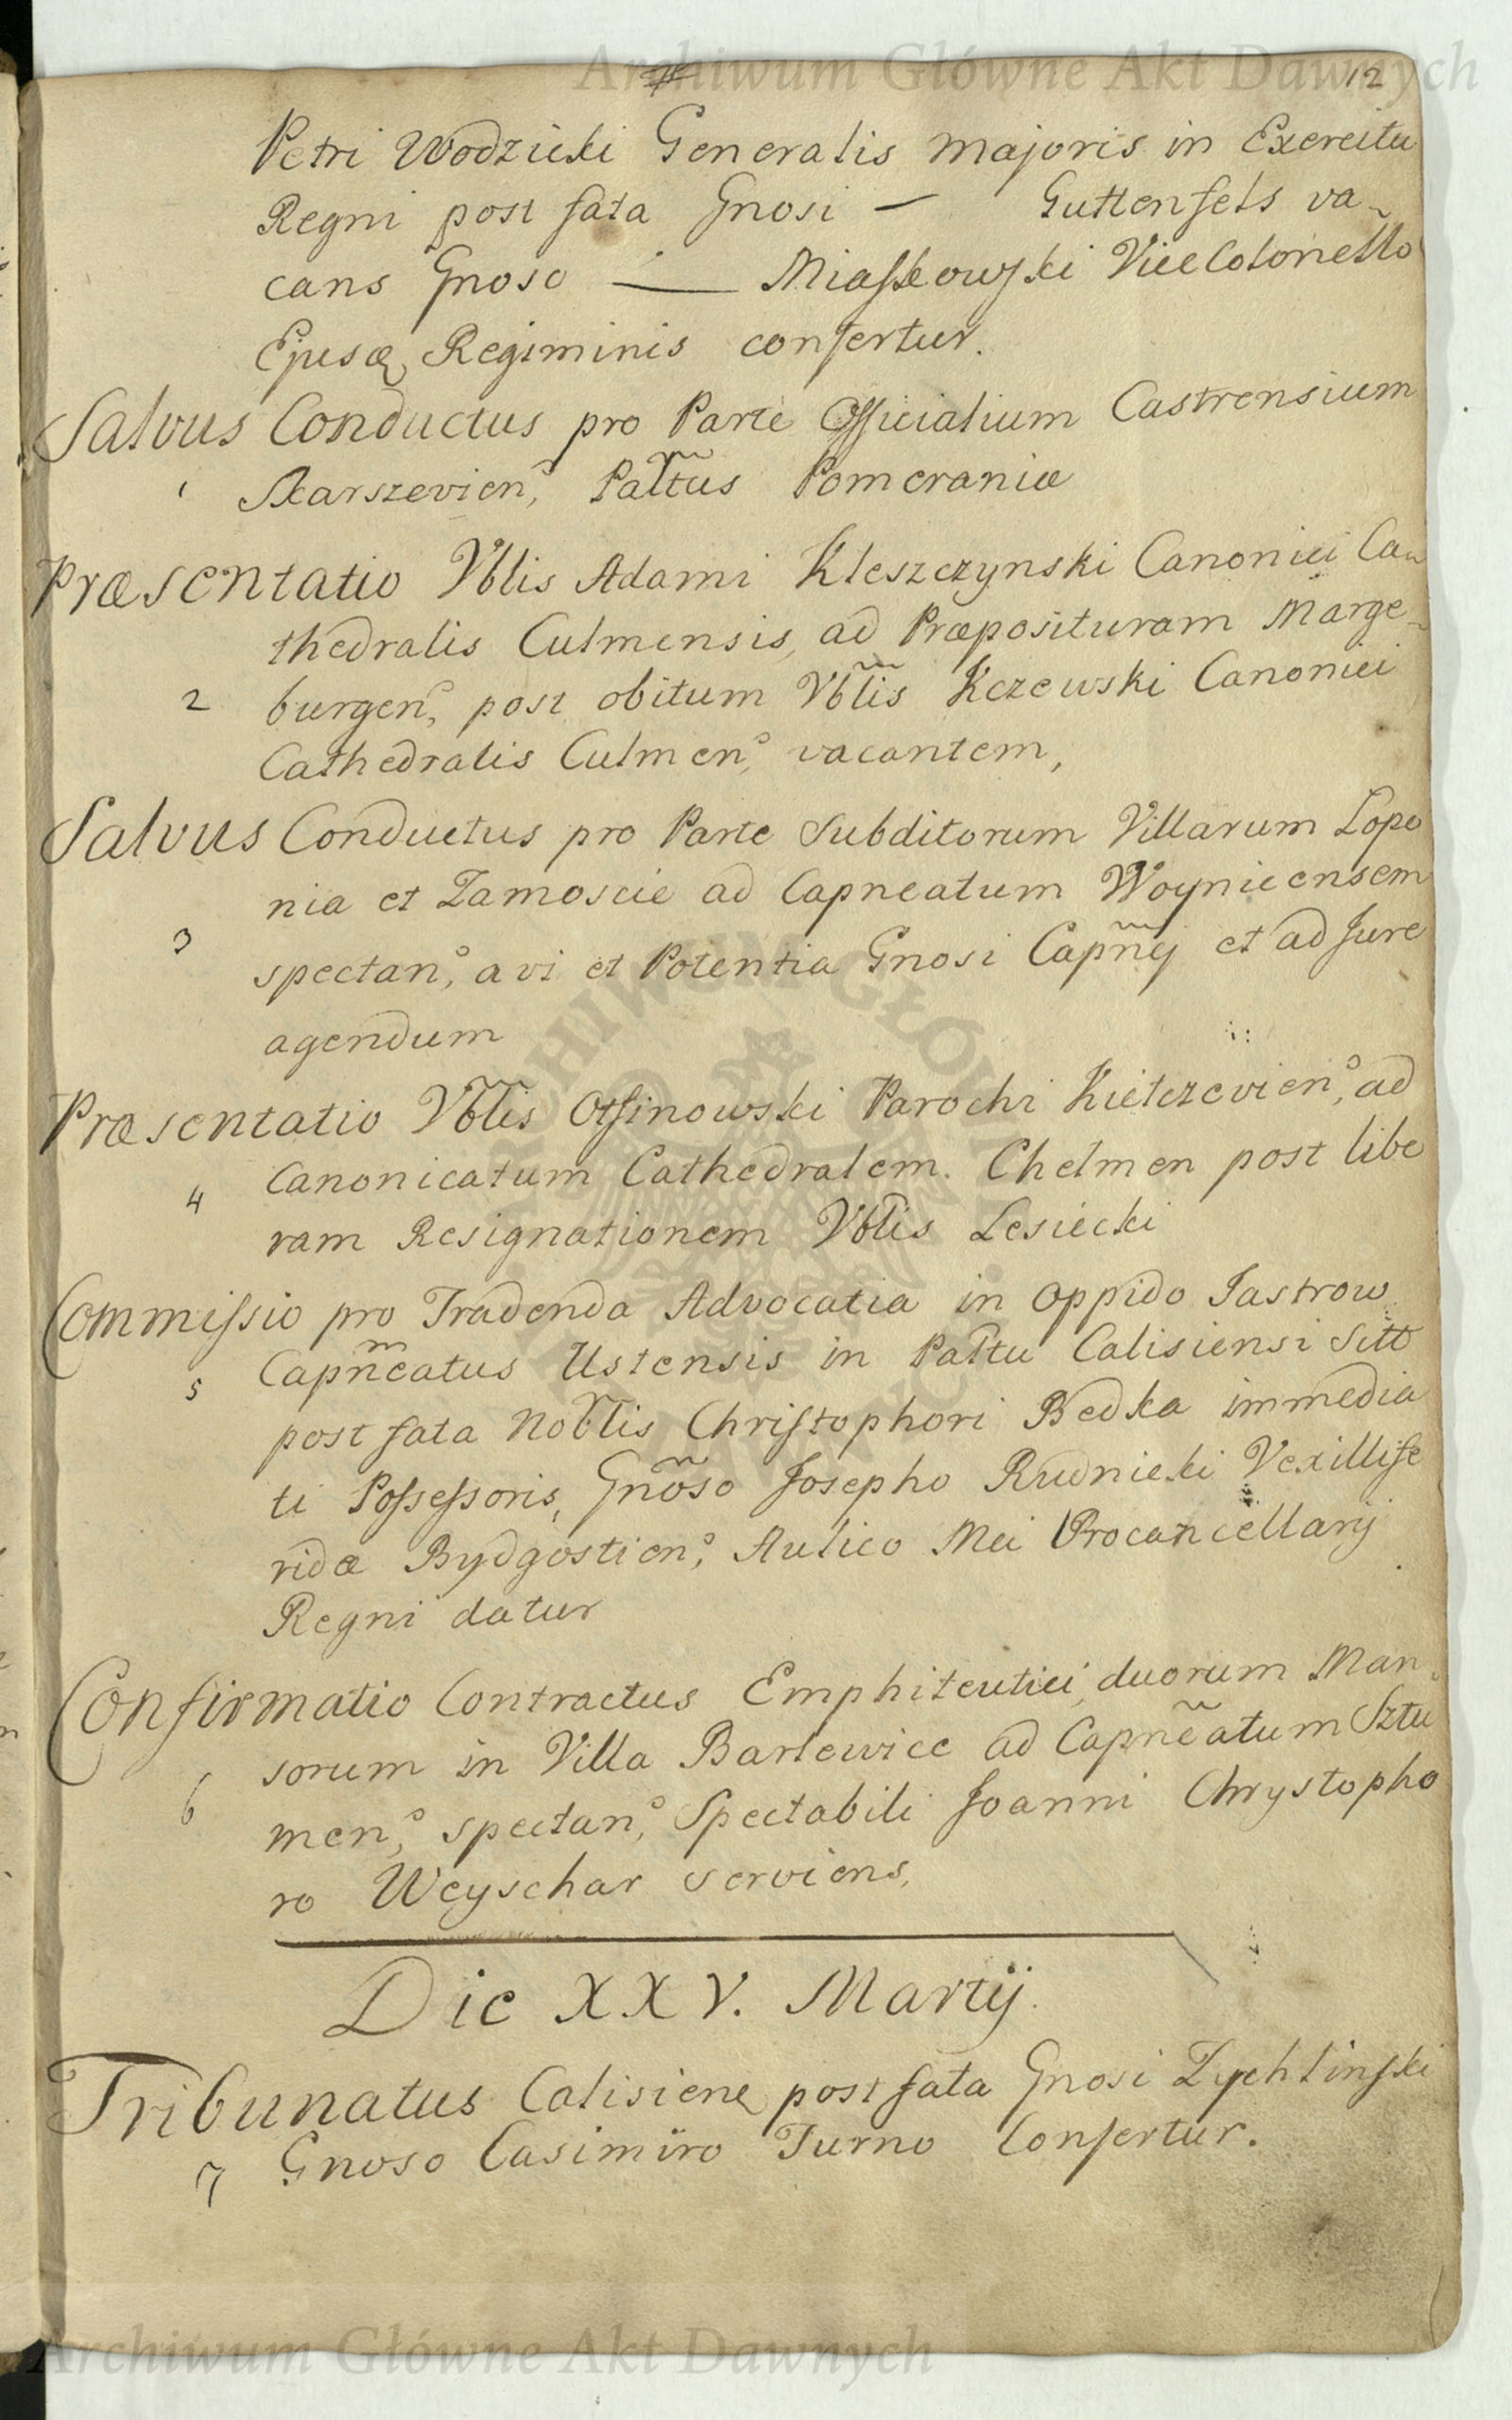 Archiwum Główne Akt Dawnych
12
Petri Wodzicki Generalis Majoris in Exercitu
Regni post fata Gnosi — Guttenfels va-
cans Gnoso — Miaskowski Vice Colonello
Ejusq Regiminis confertur.
Salvus Conductus pro Parte Officialium Castrensium
1 Skarszevien, Paltus Pomeraniæ
Præsentatio Vblis Adami Kleszczynski Canonici Ca-
thedralis Culmensis, ad Præposituram Marge-
2 burgen, post obitum Vblis Kczewski Canonici
Cathedralis Culmen, vacantem,
Salvus Conductus pro Parte Subditorum Villarum Lopo
nia et Zamoscie ad Capneatum Woynicensem
3 spectan, a vi et Potentia Gnosi Capnej et ad Jure
agendum
Præsentatio Vblis Ossinowski Parochi Kielczevien, ad
4 Canonicatum Cathedralem. Chelmen post libe
ram Resignationem Vblis Lesiecki
Commissio pro Tradenda Advocatia in Oppido Jastrow
5 Capneatus Ustensis in Paltu Calisiensi Sitt
post fata Noblis Christophori Bedka immedia
ti Possessoris, Gnoso Josepho Rudnicki Vexillife
ridæ Bydgostien, Aulico Mei Procancellarij
Regni datur
Confirmatio Contractus Emphiteutici duorum Man-
sorum in Villa Barlewice ad Capneatum Sztu
6 men, spectan, Spectabili Joanni Chrystopho
ro Weyschar serviens,
Die XXV. Martij.
Tribunatus Calisiens post fata Gnosi Zychlinski
7 Gnoso Casimiro Turno Confertur.
Archiwum Główne Akt Dawnych